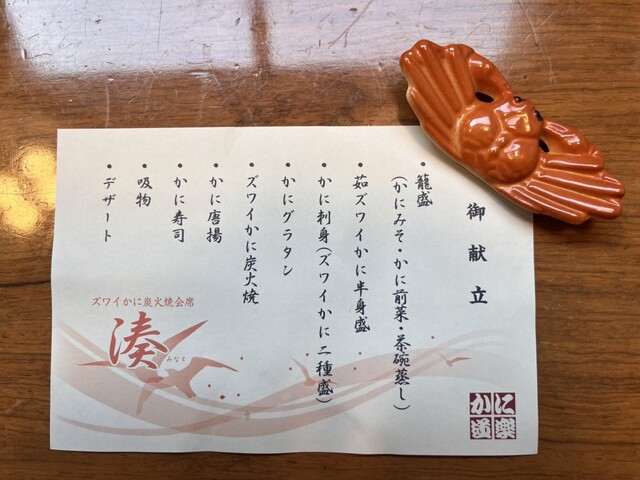 御献立
• 籠盛
(かにみそ・かに前菜・茶碗蒸し)
• 茹ズワイかに半身盛
• かに刺身(ズワイかに二種盛)
• かにグラタン
• ズワイかに炭火焼
• かに唐揚
• かに寿司
• 吸物
• デザート
ズワイかに炭火焼会席
湊
みなと
かに
道楽